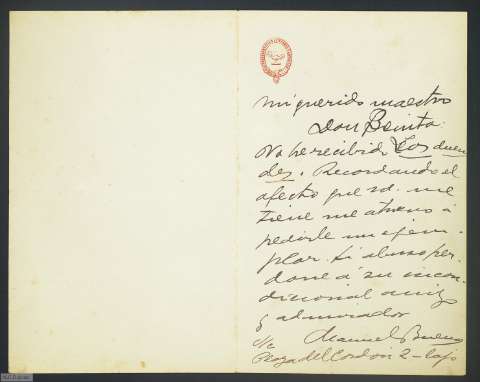 Mi querido maestro
Don Benito:
No he recibido Los duen
des. Recordando el
afecto que vd. me
tiene me atrevo á
pedirle un ejem-
plar. Si abuso per-
done á su incon-
dicional amigo
y admirador
Manuel Bueno
s/c
Plaza del Cordon 2 - bajo